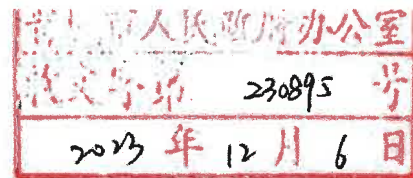 市人民政府办公室
收文字第 230895 号
2023 年 12 月 6 日